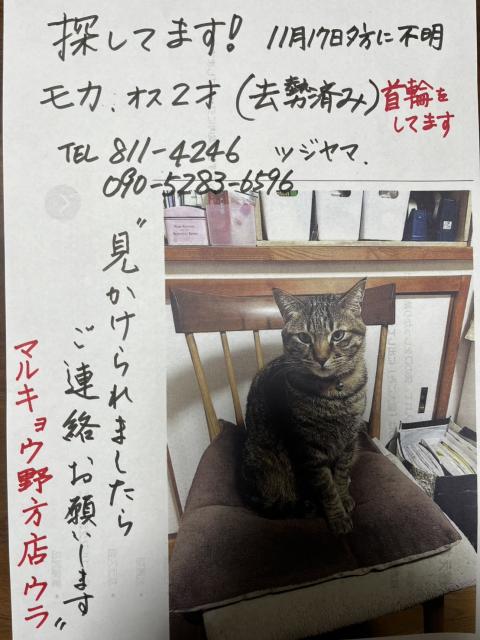 探してます! 11月17日夕方に不明
モカ、オス2才(去勢済み)首輪を
してます
TEL 811-4246 ツジヤマ.
090-5283-6596
"見かけられましたら
ご連絡お願いします"
マルキョウ野方店ウラ